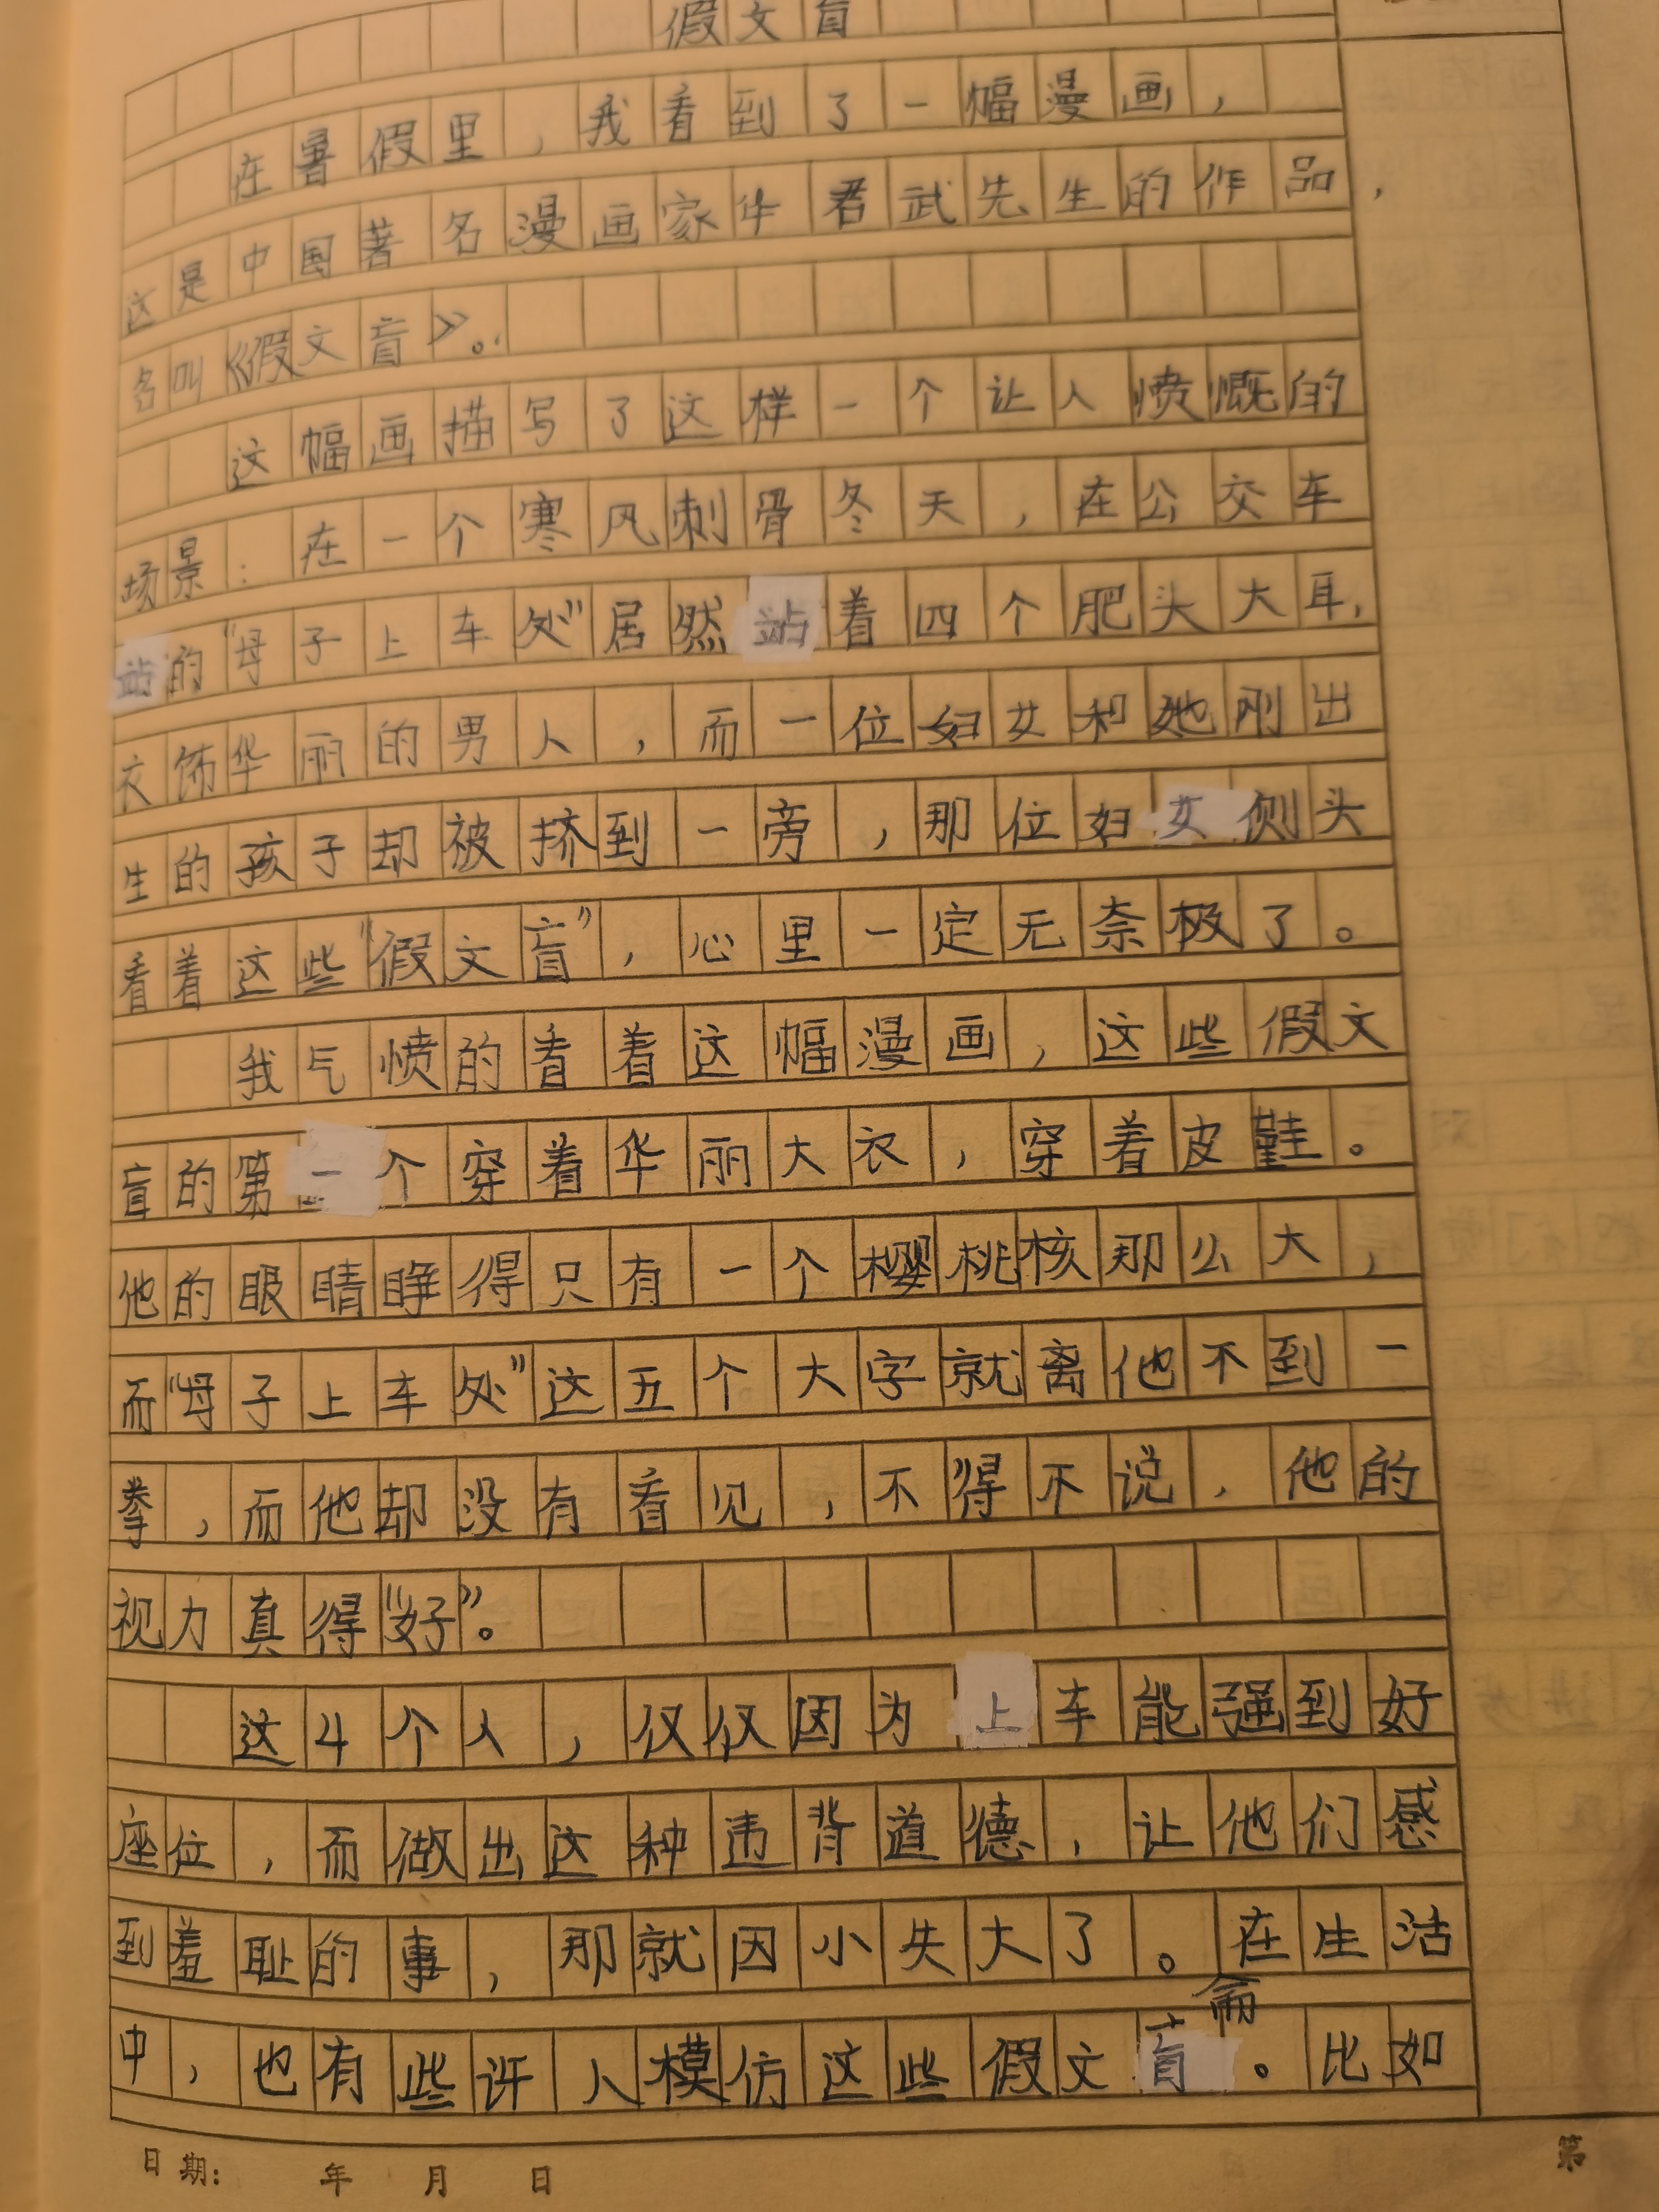 假文盲
在暑假里，我看到了一幅漫画，
这是中国著名漫画家华君武先生的作品，
名叫《假文盲》。
这幅画描写了这样一个让人愤慨的
场景：在一个寒风刺骨冬天，在公交车
站的“母子上车处”居然站着四个肥头大耳，
衣饰华丽的男人，而一位妇女和她刚出
生的孩子却被挤到一旁，那位妇女侧头
看着这些“假文盲”，心里一定无奈极了。
我气愤的看着这幅漫画，这些假文
盲的第一个穿着华丽大衣，穿着皮鞋。
他的眼睛睁得只有一个樱桃核那么大，
而“母子上车处”这五个大字就离他不到一
拳，而他却没有看见，不得不说，他的
视力真得“好”。
这4个人，仅仅因为上车能强到好
座位，而做出这种违背道德，让他们感
到羞耻的事，那就因小失大了。在生活
中，也有些许人模仿这些假文盲。比如
日期： 年 月 日
第